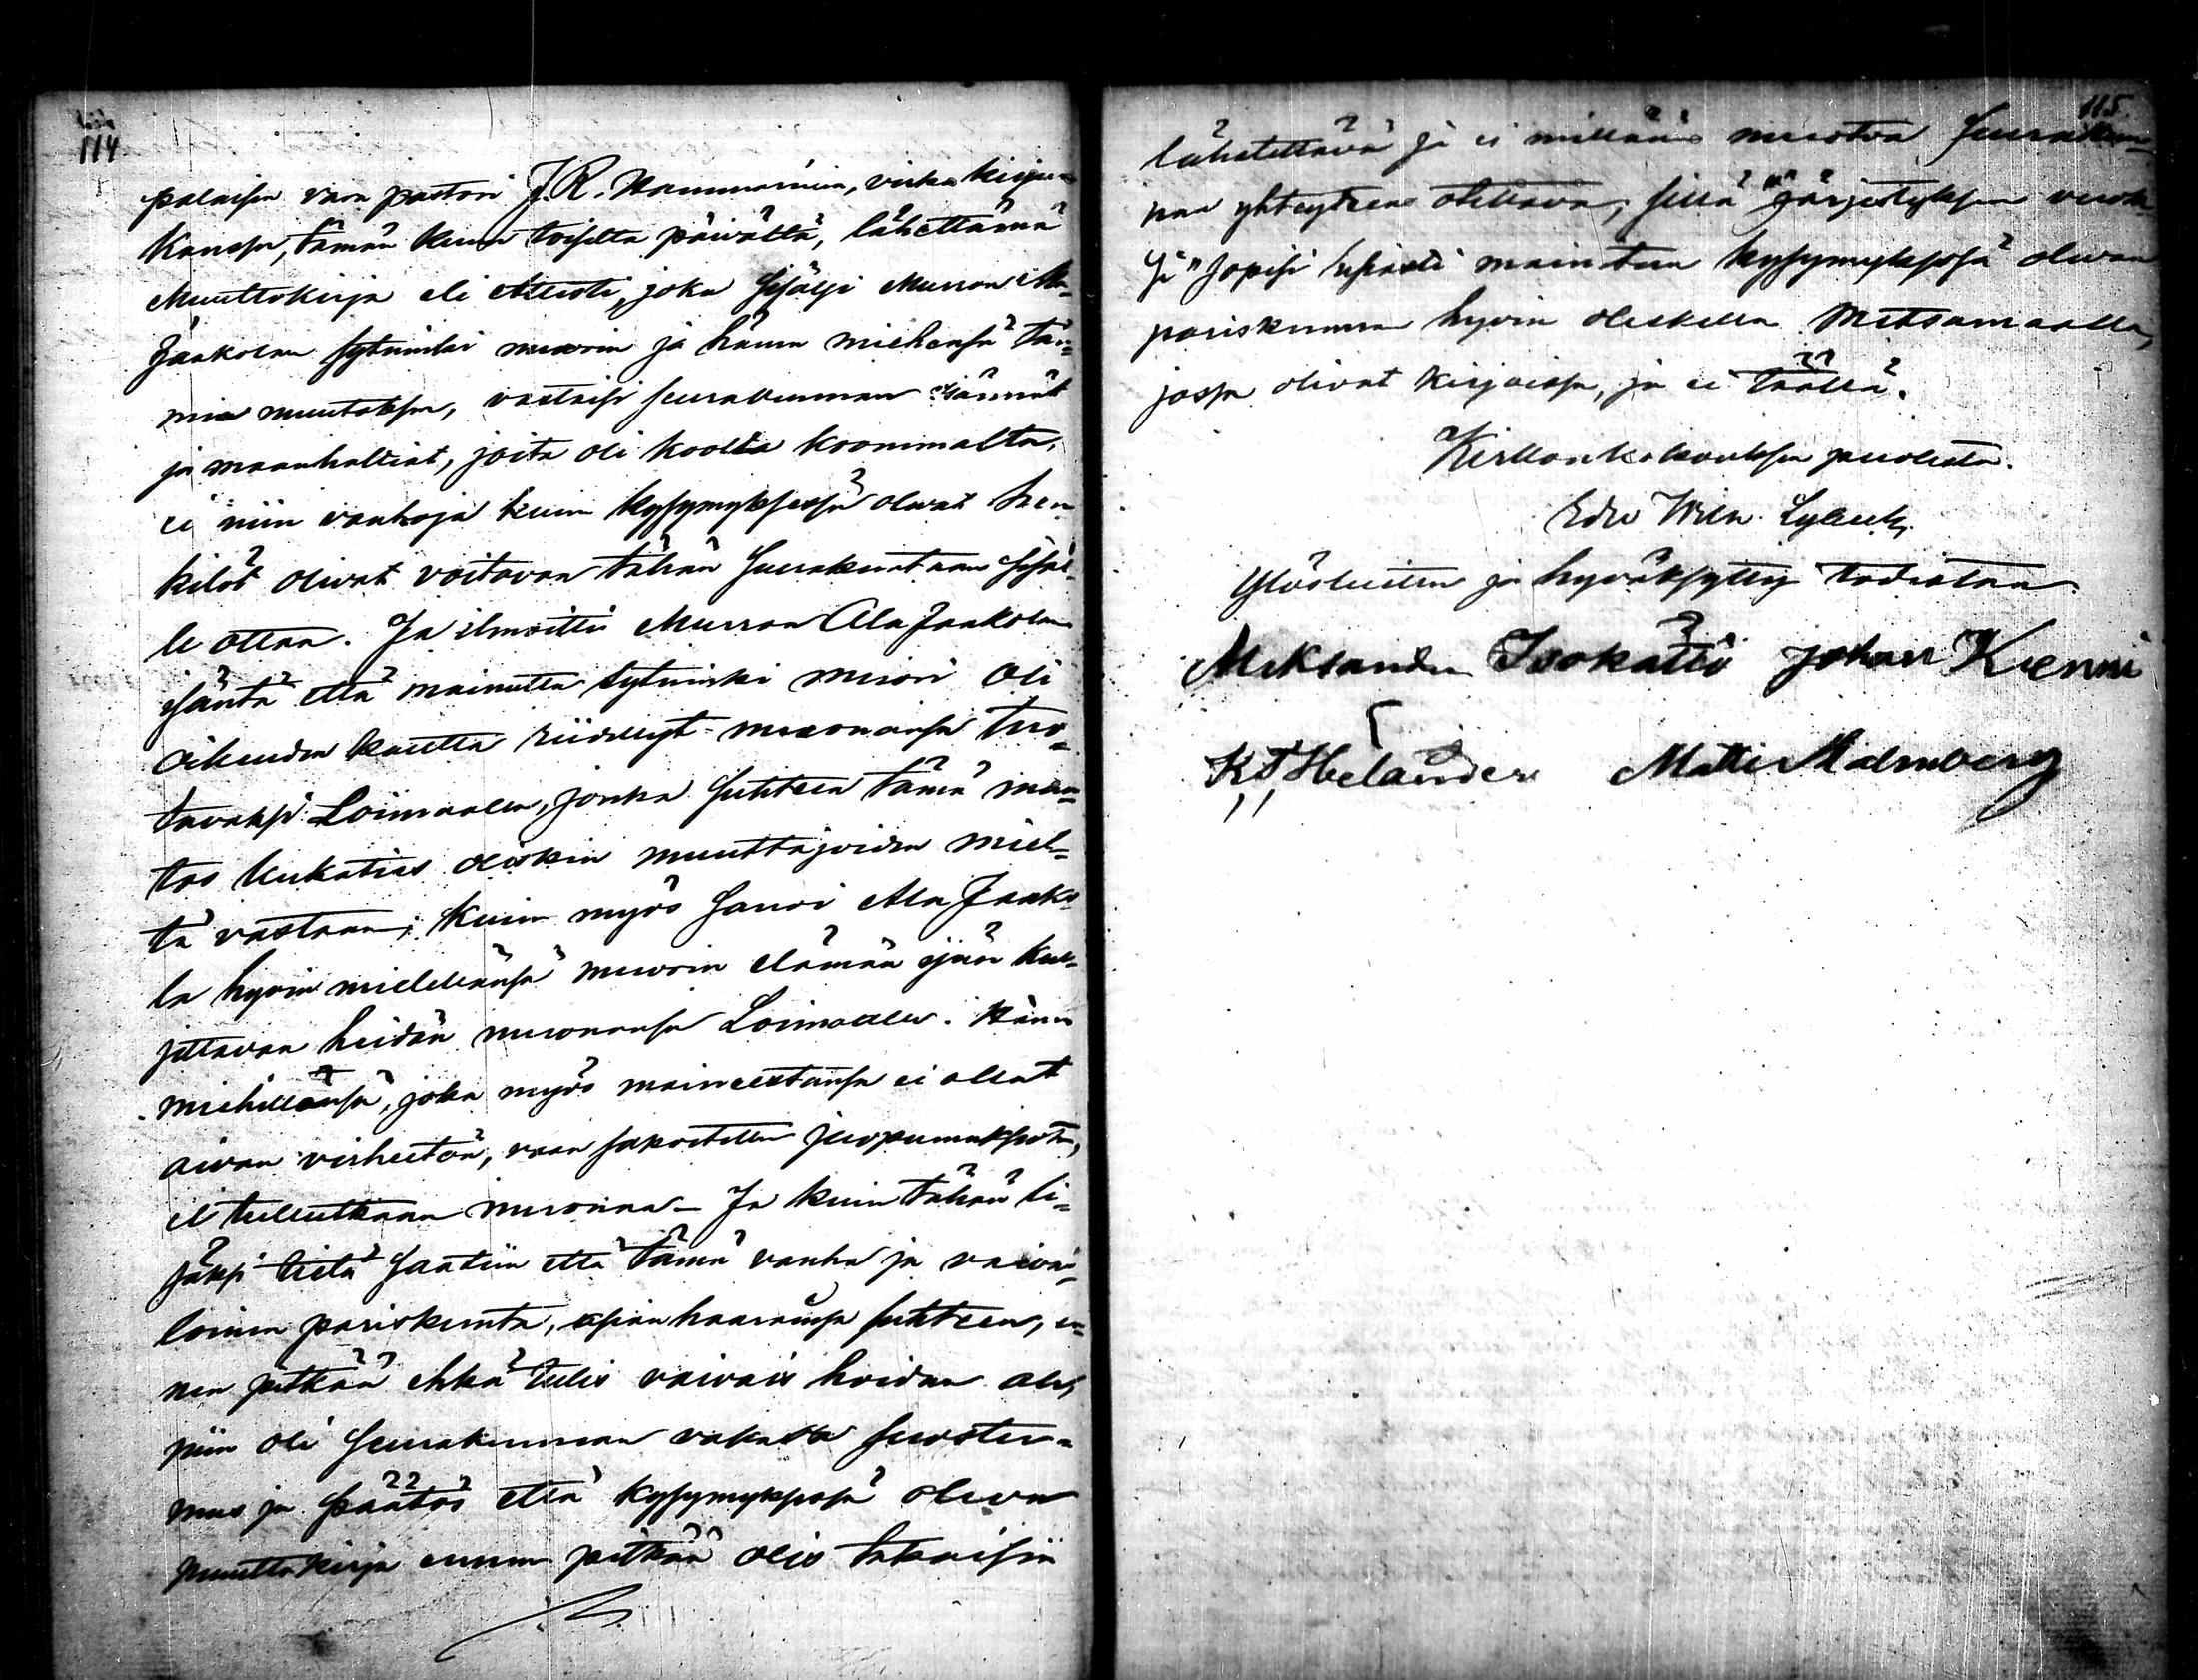 114
palaisen vara pastori J. R. Hammarinin, virka kirjan
kanssa, tämän kuun toiselta päivältä, lähettämä
Muuttokirja eli Attesti, joka sisälsi Murron Ala
Jaakolan sytninki muorin ja hänen miehensä tän-
ne muutoksen, vastaisi seurakunnan isännät
ja maanhaltiat, joita oli koolla koommalta,
ei niin vanhoja kuin kysymyksessä olevat hen
kilöt olivat voitavan tähän seurakuntaan sisäl-
le ottaa. Ja ilmoitti Murron Ala Jaakolan
isäntä että mainittu sytninki muori oli
oikeuden kautta riidellyt muonansa tuo-
tavaksi Loimaalle, jonka suhteen tämä muu-
tos kukaties oliskin muuttajoiden miel-
tä vastaan; kuin myös sanoi Ala Jaako-
la hyvin mielellänsä muorin elämän ijän kul-
jettavan heidän muonansa Loimaalle. Hänen
miehellänsä, joka myös maineestansa ei ollut
aivan virheetön, vaan sakoitettu juopumuksesta,
ei tullutkaan muonaa. Ja kuin tähän li-
säksi tietä saatiin että tämä vanha ja vaivai-
loinen pariskunta, asian haarainsa suhteen, en-
nen pitkää ehkä tulis vaivais hoidon ala,
niin oli seurakunnan vakava suostu-
mus ja päätös että kysymyksessä oleva
muuttokirja ennen pitkää olis takaisin
115.
lähetettävä ja ei millään muotoa seurakun-
nan yhteyteen otettava, sillä "järjestyksen vuok-
si" sopisi mainitun kysymyksessä olevan
pariskunnan hyvin oleskella Metsämaalla,
jossa olivat kirjoissa, ja ei täällä.
Kirkonkokouksen puolesta.
Edv. Wilh. Sylvén
Ylösluetuksi ja hyväksytyksi todistaa
Aleksander Isokallio Johan Kienni
K. F. Helander Matti Malmberg